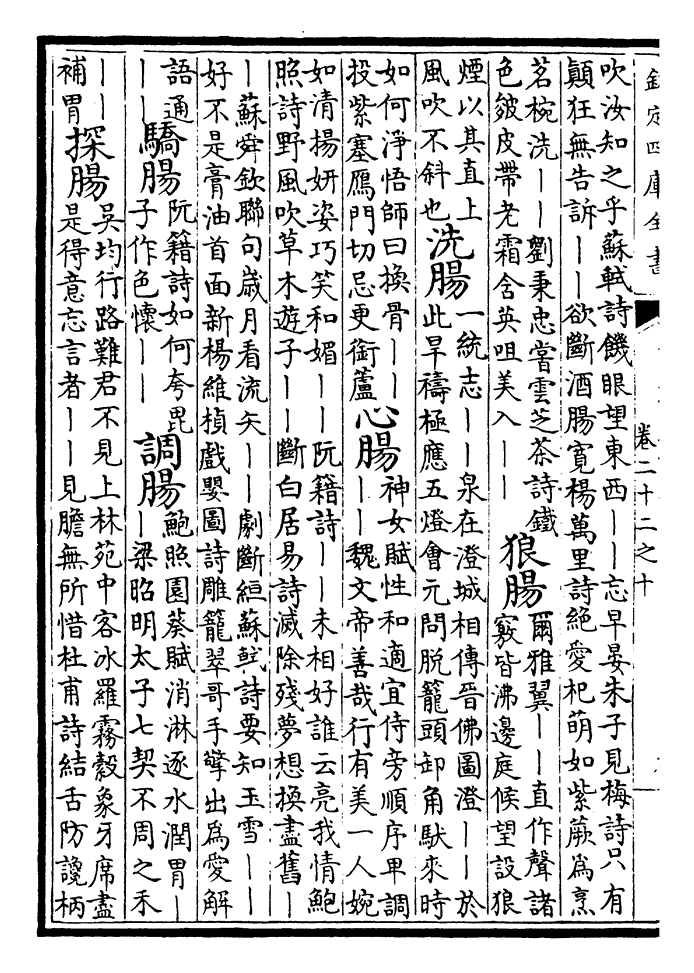 欽定四庫全書
卷二十二之十
吹汝知之乎蘇軾詩饑眼望東西——忘早晏朱子見梅詩只有
顛狂無告訴——欲斷酒腸寬楊萬里詩絕愛杞萌如紫蕨為烹
茗椀洗——劉秉忠嘗雲芝茶詩鐵
色皴皮帶老霜含英咀美入——
狼腸
爾雅翼——直作聲諸
竅皆沸邊庭候望設狼
煙以其直上
風吹不斜也
洗腸
一統志——泉在澄城相傳晉佛圖澄——於
此旱禱極應五燈會元問脫籠頭卸角馱來時
如何淨悟師曰換骨——
投紫塞鴈門切忌更銜蘆
心腸
神女賦性和適宜侍旁順序卑調
——魏文帝善哉行有美一人婉
如清揚妍姿巧笑和媚——阮籍詩——未相好誰云亮我情鮑
照詩野風吹草木遊子——斷白居易詩滅除殘夢想換盡舊—
—蘇舜欽聯句歲月看流矢——劇斷絙蘇軾詩要知玉雪——
好不是膏油首面新楊維楨戲嬰圖詩雕籠翠哥手擘出為愛解
語通
——
驕腸
阮籍詩如何夸毘
子作色懷——
調腸
鮑照園葵賦消淋逐水潤胃—
—梁昭明太子七契不周之禾
——
補胃
探腸
吳均行路難君不見上林苑中客冰羅霧縠象牙席盡
是得意忘言者——見膽無所惜杜甫詩結舌防讒柄